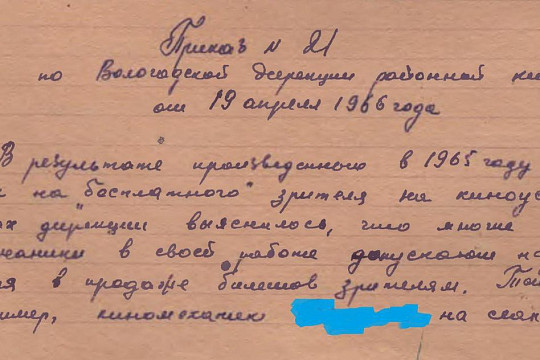 Приказ № 21
по Вологодской дирекции районной ки
от 19 апреля 1966 года
В результате произведенного в 1965 году
на "бесплатного" зрителя на киноус
ах дирекции выяснилось, что многие
ханики в своей работе допускают на
я в продаже билетов зрителям. Так
имер, киномеханик на сеан